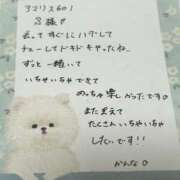 3様♡
会ってすぐにハグして
チューしてドキドキやったね
ずっと一緒いて
いちゃいちゃできて
めっちゃ楽しかったです♡
また会えて
たくさんいちゃいちゃ
したいです!!